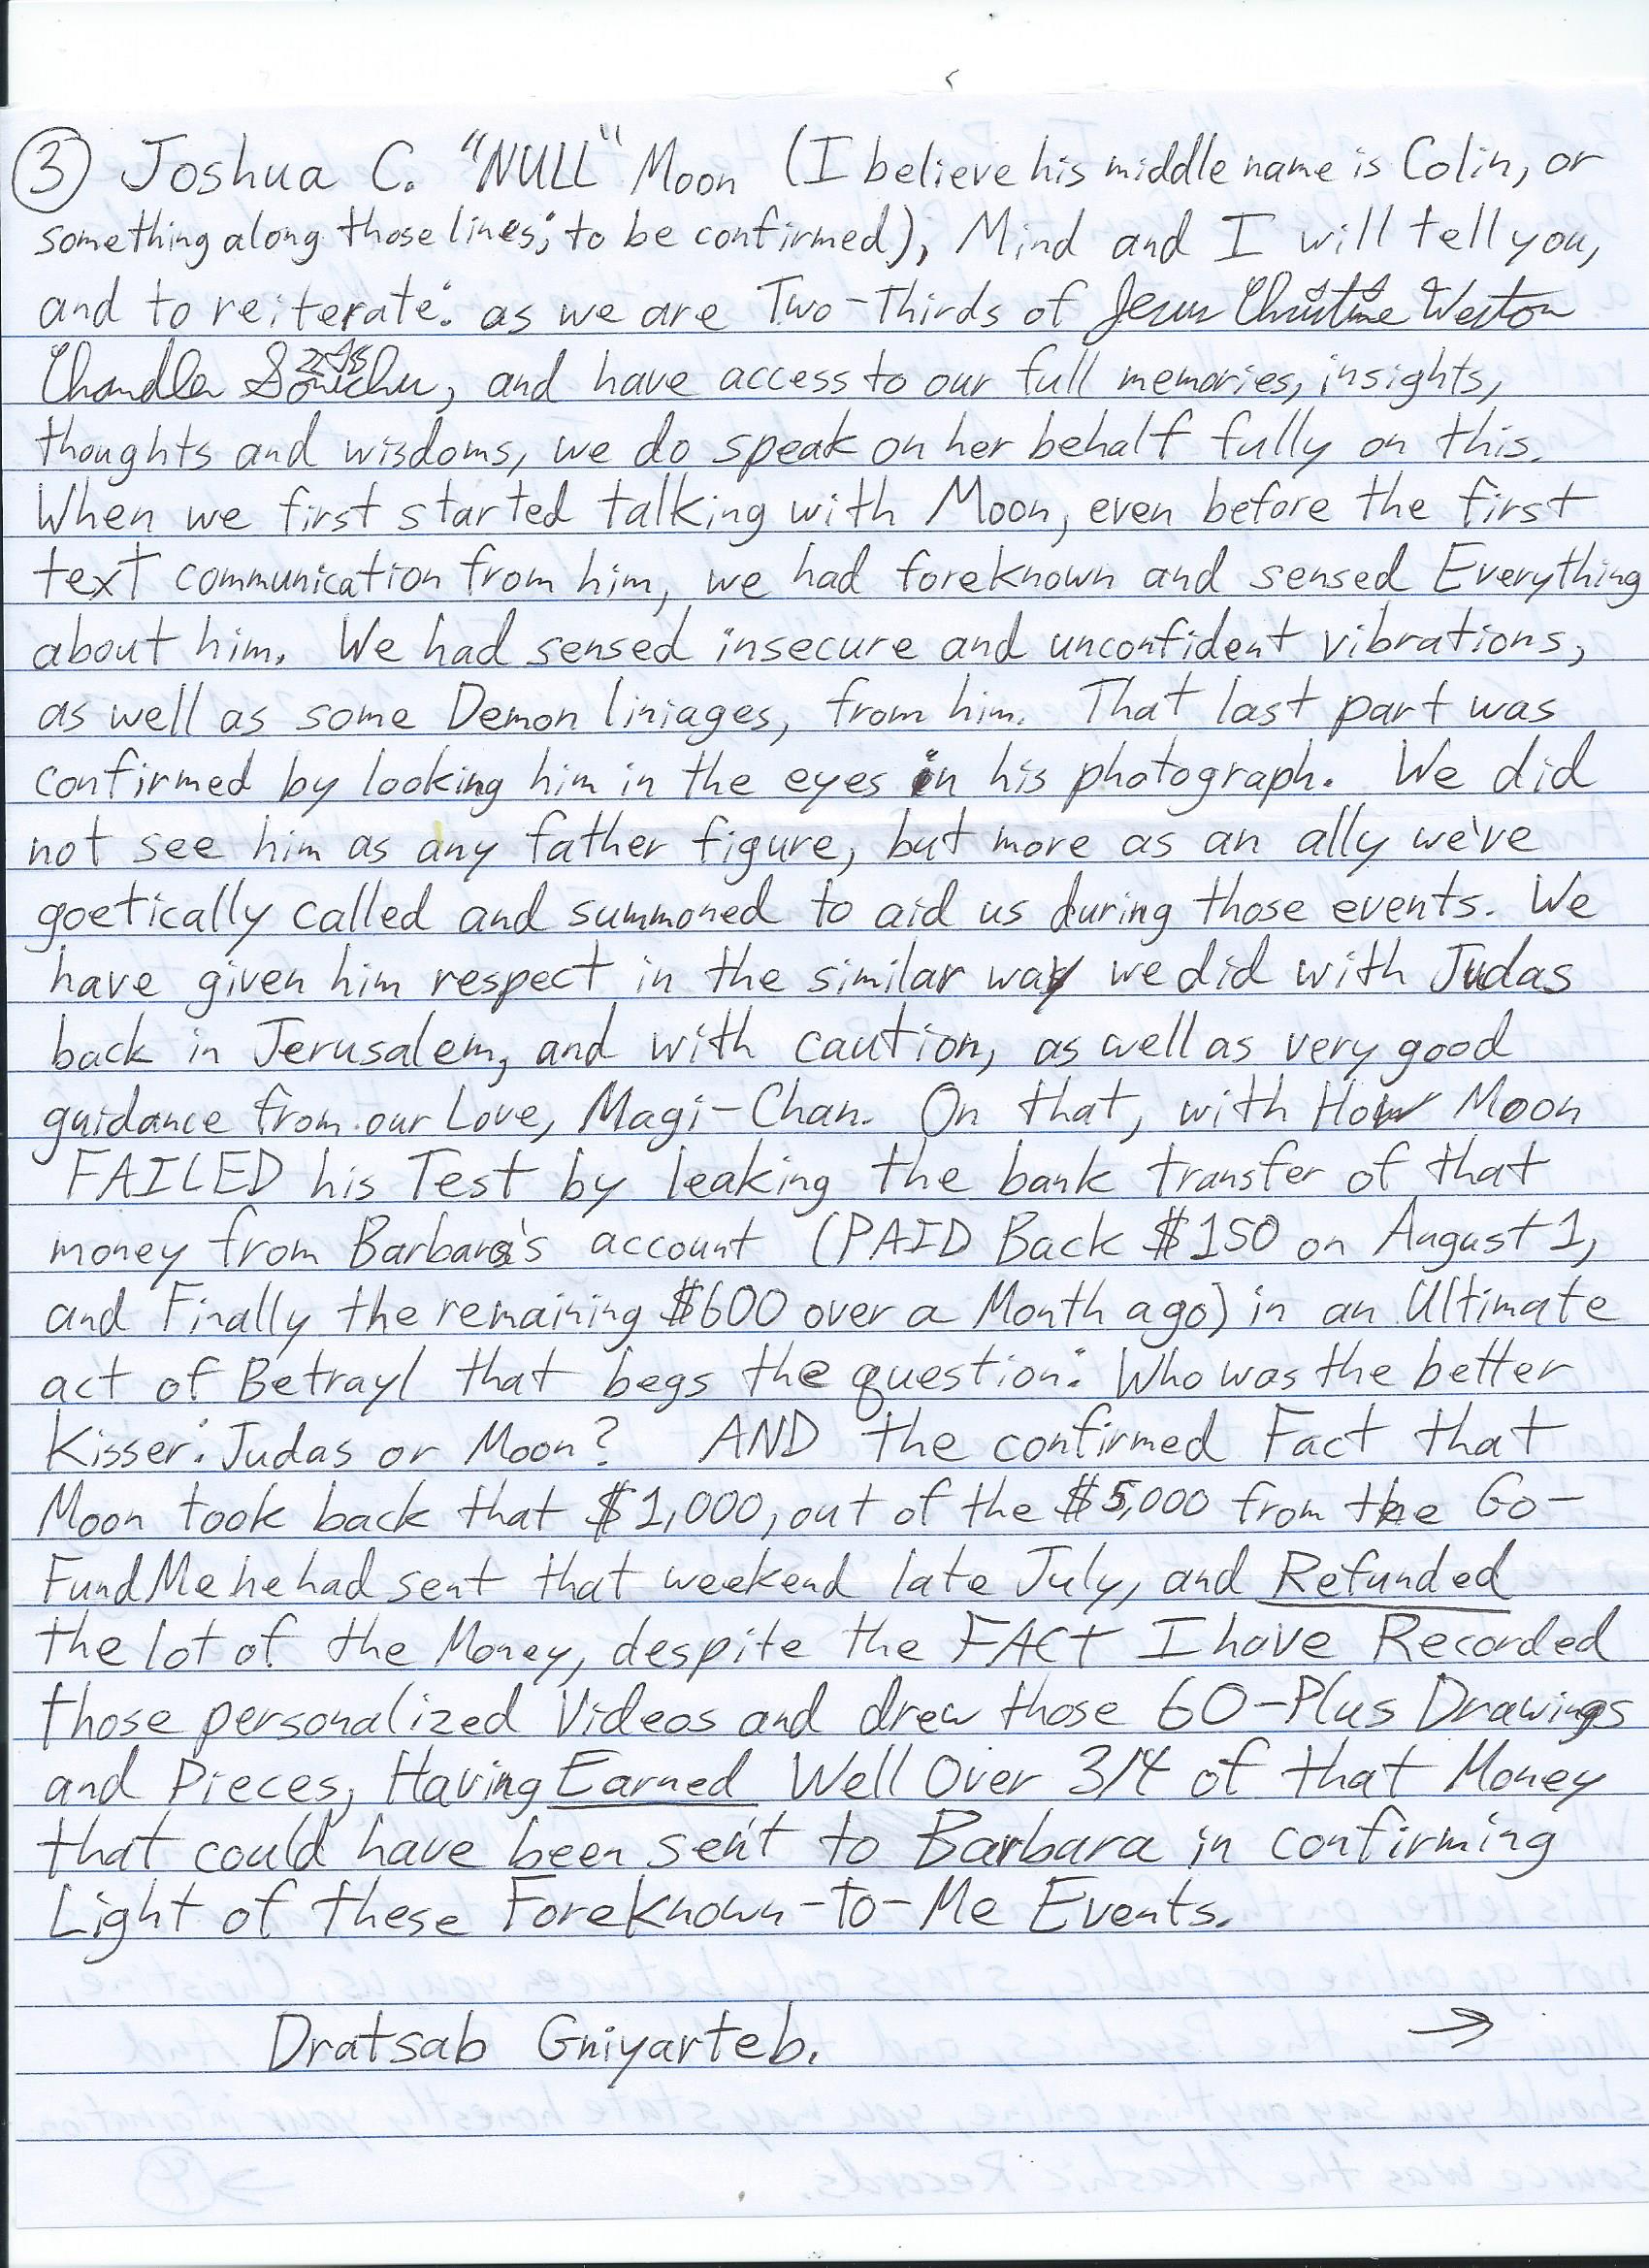 ③ Joshua C. "NULL" Moon (I believe his middle name is Colin, or
something along those lines; to be confirmed), Mind and I will tell you,
and to reiterate: as we are Two-Thirds of Jesus Christine Weston
Chandler Sonichu, and have access to our full memories, insights,
thoughts and wisdoms, we do speak on her behalf fully on this.
When we first started talking with Moon, even before the first
text communication from him, we had foreknown and sensed Everything
about him. We had sensed insecure and unconfident vibrations,
as well as some Demon liniages, from him. That last part was
confirmed by looking him in the eyes in his photograph. We did
not see him as any father figure, but more as an ally we've
goetically called and summoned to aid us during those events. We
have given him respect in the similar way we did with Judas
back in Jerusalem, and with caution, as well as very good
guidance from our Love, Magi-Chan. On that, with How Moon
FAILED his Test by leaking the bank transfer of that
money from Barbara's account (PAID Back $150 on August 1,
and Finally the remaining $600 over a Month ago) in an Ultimate
act of Betrayl that begs the question: Who was the better
Kisser: Judas or Moon? AND the confirmed Fact that
Moon took back that $1,000, out of the $5,000 from the Go-
FundMe he had sent that weekend late July, and Refunded
the lot of the Money, despite the FACT I have Recorded
those personalized Videos and drew those 60-Plus Drawings
and Pieces, Having Earned Well Over 3/4 of that Money
that could have been sent to Barbara in confirming
Light of these Foreknown-to-Me Events.
Dratsab Gniyarteb. →